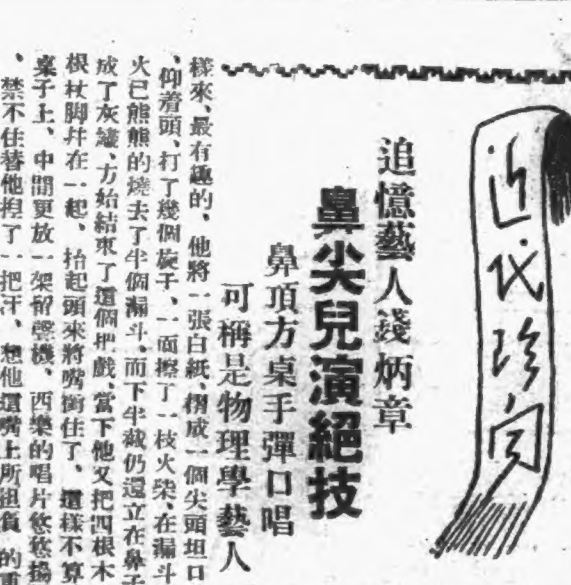 近代珍闻
追憶藝人錢炳章
鼻尖兒演絕技
鼻頂方桌手彈口唱
可稱是物理學藝人
樣來、最有趣的、他將一張白紙、摺成一個尖頭坦口
、仰着頭、打了幾個旋子、一面擦了一枝火柴、在漏斗
火已熊熊的燒去了半個漏斗、而下半截仍還立在鼻子
成了灰燼、方始結束了這個把戲、當下他又把四根木
根杖脚幷在一起、抬起頭來將嘴銜住了、這樣不算
桌子上、中間更放一架留聲機、西樂的唱片悠悠揚
、禁不住替他揑了一把汗、想他這嘴上所担負的重